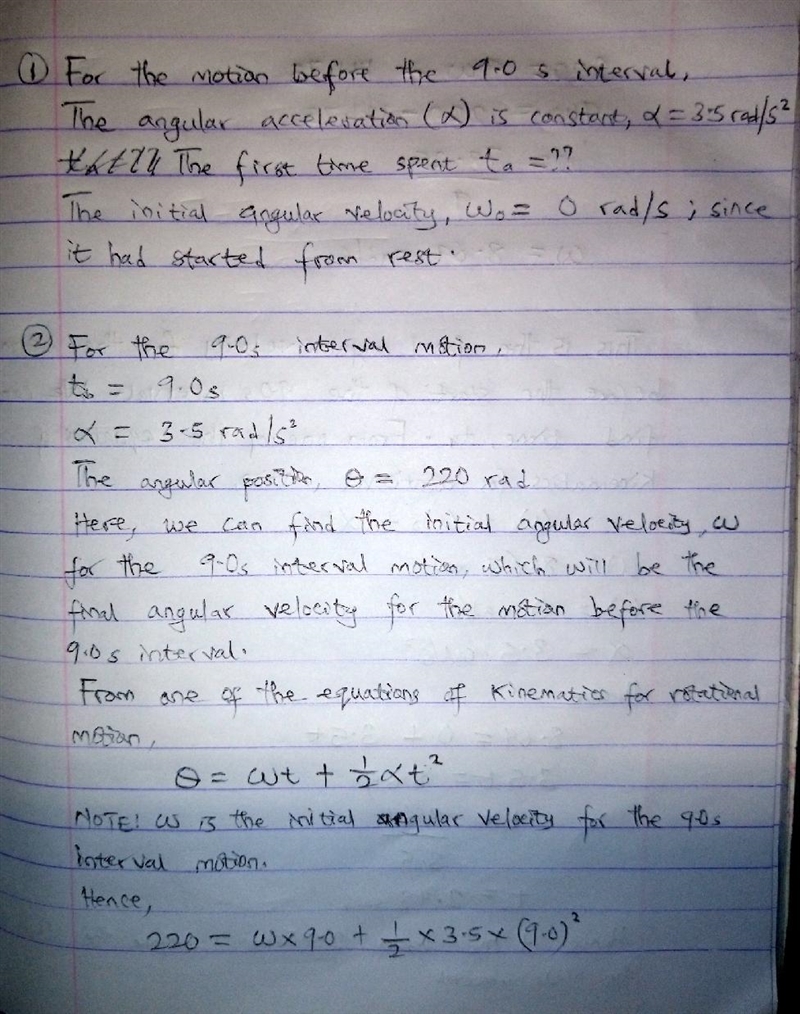 ① For the motion before the 9.0 s interval,
The angular acceleration (α) is constant, α = 3.5 rad/s²
The first time spent ta = ??
The initial angular velocity, ω₀ = 0 rad/s ; since
it had started from rest.
② For the 9.0s interval motion,
tb = 9.0s
α = 3.5 rad/s²
The angular position, θ = 220 rad
Here, we can find the initial angular velocity, ω
for the 9.0s interval motion, which will be the
final angular velocity for the motion before the
9.0 s interval.
From one of the equations of Kinematics for rotational
motion,
θ = ωt + ½αt²
NOTE! ω is the initial angular velocity for the 9.0s
interval motion.
Hence,
220 = ω × 9.0 + ½ × 3.5 × (9.0)²